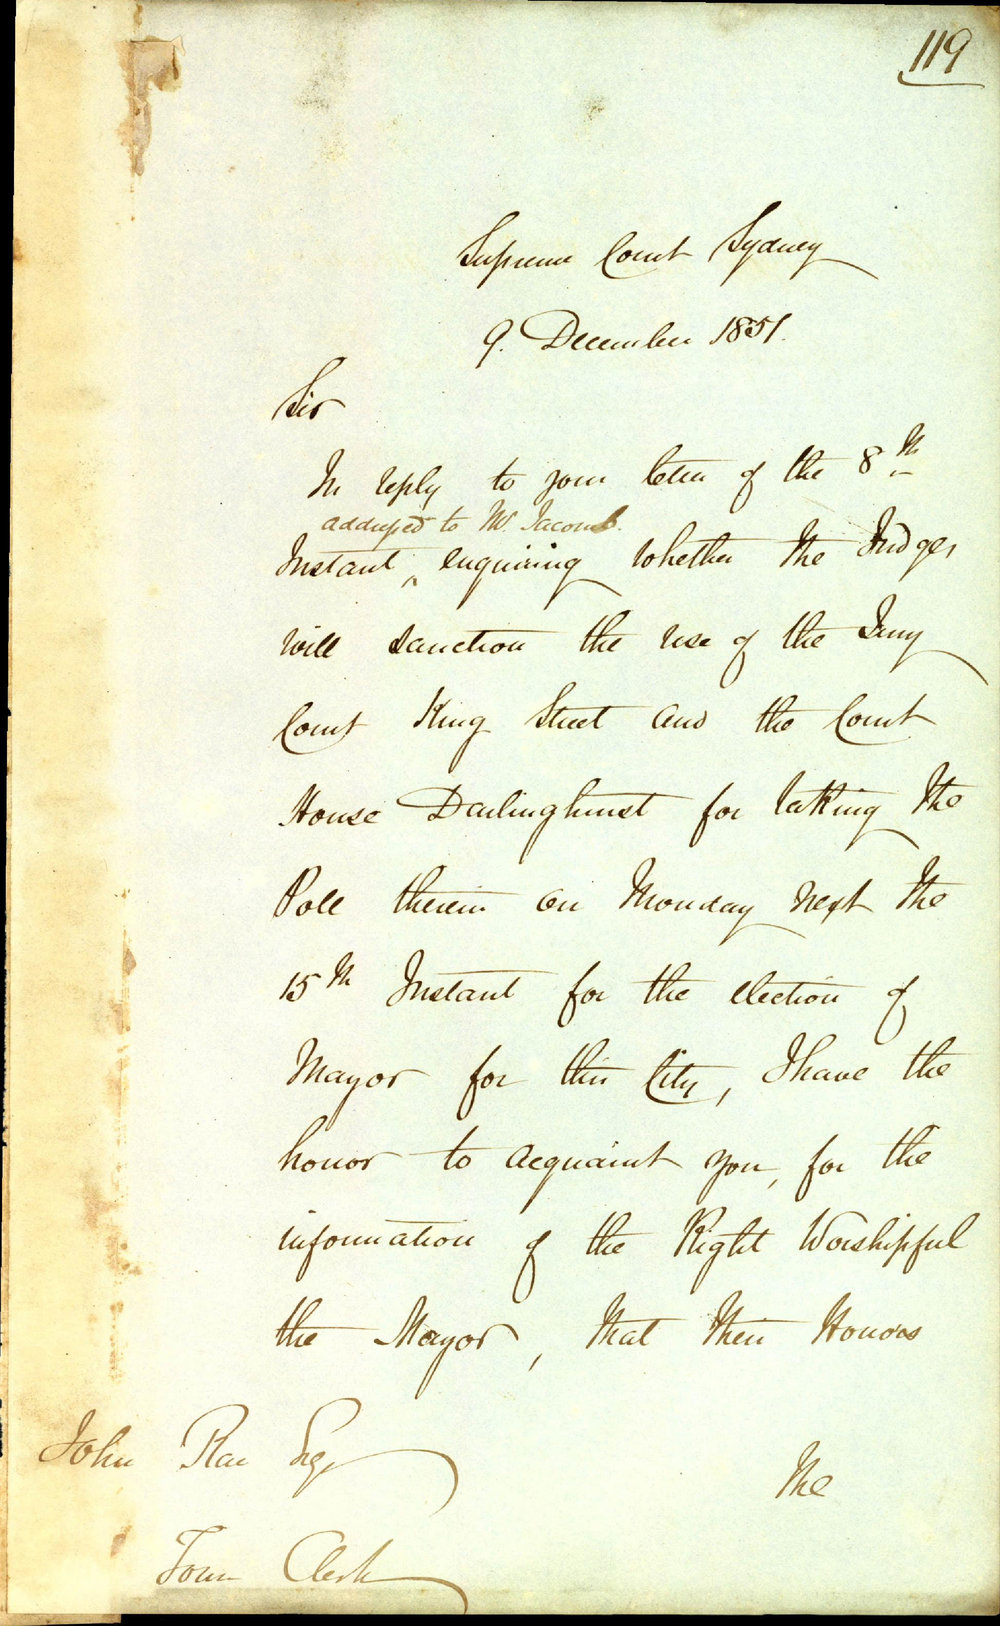 119
Supreme Court Sydney
9. December 1851.
Sir
In reply to your letter of the 8th
addressed to Mr. Jacomb.
Instant, enquiring whether the Judges
will sanction the use of the Jury
Court King Street and the Court
House Darlinghurst for taking the
Poll therein on Monday next the
15th Instant for the election of
Mayor for this City, I have the
honor to acquaint you, for the
information of the Right Worshipful
the Mayor, that their Honors
John Rae Esq
the
Town Clerk